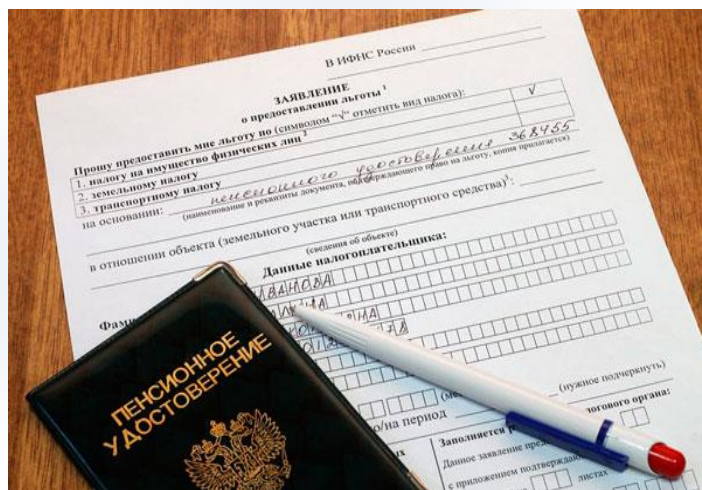 В ИФНС России
ЗАЯВЛЕНИЕ
о предоставлении льготы 1
Прошу предоставить мне льготу по (символом "√" отметить вид налога):
1. налогу на имущество физических лиц 2 √
2. земельному налогу
3. транспортному налогу
на основании: пенсионного удостоверения 368455
(наименование и реквизиты документа, подтверждающего право на льготу, копия прилагается)
в отношении объекта (земельного участка или транспортного средства)3:
(сведения об объекте)
Данные налогоплательщика:
ВАНОВА
(нужное подчеркнуть)
о/на период
логового органа:
Заполняется р
Данное заявление пред
с приложением подтвержда
листах
ПЕНСИОННОЕ
УДОСТОВЕРЕНИЕ